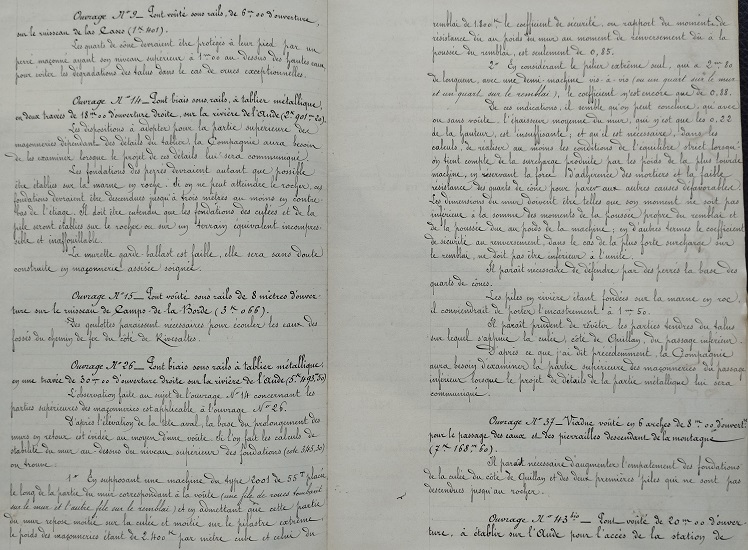 Ouvrage N° 9 _ Pont voûté sous rails, de 6m00 d'ouverture,
sur le ruisseau de las Cases (1k 401).
Les quarts de cône devraient être protégés à leur pied par un
perré maçonné ayant son niveau supérieur à 1m00 au-dessus des hautes eaux,
pour éviter les dégradations des talus dans le cas de crues exceptionnelles.
Ouvrage N° 14 _ Pont biais sous rails, à tablier métallique,
en deux travées de 18m00 d'ouverture droite, sur la rivière de l'Aude (2k 901m20).
Les dispositions à adopter pour la partie supérieure des
maçonneries dépendant des détails du tablier, la Compagnie aura besoin
de les examiner lorsque le projet de ces détails lui sera communiqué.
Les fondations des perrés devraient autant que possible
être établies sur la marne en roche. Si on ne peut atteindre le rocher, ces
fondations devraient être descendues jusqu'à trois mètres au moins en contre
bas de l'étiage. Il doit être entendu que les fondations des culées et de la
pile seront établies sur le rocher ou sur un terrain équivalent incompres-
sible et inaffouillable.
La murette garde ballast est faible, elle sera sans doute
construite en maçonnerie assisée soignée.
Ouvrage N° 15 _ Pont voûté sous rails de 8 mètres d'ouver-
ture sur le ruisseau de Camps-de la Borde (3k 066).
Des goulottes paraissent nécessaires pour écouler les eaux des
fossés du chemin de fer du côté de Rivesaltes.
Ouvrage N° 26 _ Pont biais sous rails à tablier métallique,
en une travée de 30m00 d'ouverture droite sur la rivière de l'Aude (5k 493.50)
L'observation faite au sujet de l'ouvrage N° 14 concernant les
parties supérieures des maçonneries est applicable à l'ouvrage N° 26.
D'après l'élévation de la tête aval, la base du prolongement des
murs en retour est évidée au moyen d'une voûte. Si l'on fait les calculs de
stabilité du mur au-dessus du niveau supérieur des fondations (cote 345,30)
on trouve:
1° En supposant une machine du type 2001 de 55T placée
le long de la partie du mur correspondant à la voûte (une file de roues
sur le mur et l'autre file sur le remblai) et en admettant que cette partie
du mur repose moitié sur la culée et moitié sur le pilastre extrême,
le poids des maçonneries étant de 2400 k par mètre cube et celui du
remblai de 1.800 k le coefficient de sécurité, ou rapport du moment de
résistance dû au poids du mur au moment de renversement dû à la
poussée du remblai, est seulement de 0,85.
2° En considérant le pilier extrême seul, qui a 2m80
de longueur, avec une demi-machine vis-à-vis (ou un quart sur le mur
et un quart sur le remblai), le coefficient n'est encore que de 0,88.
De ces indications, il semble qu'on peut conclure, qu'avec
ou sans voûte l'épaisseur moyenne du mur, qui n'est que les 0,22
de la hauteur, est insuffisante; et qu'il est nécessaire, dans les
calculs, de réaliser au moins les conditions de l'équilibre strict lorsqu'
on tient compte de la surcharge produite par le poids de la plus lourde
machine, en réservant la force d'adhérence des mortiers et la faible
résistance des quarts de cône pour parer aux autres causes défavorables.
Les dimensions du mur doivent être telles que son moment ne soit pas
inférieur à la somme des moments de la poussée propre du remblai et
de la poussée due au poids de la machine; en d'autres termes le coefficient
de sécurité au renversement dans le cas de la plus forte surcharge sur
le remblai, ne doit pas être inférieur à l'unité.
Il paraît nécessaire de défendre par des perrés la base des
quarts de cônes.
Les piles en rivière étant fondées sur la marne en roc,
il conviendrait de porter l'encastrement à 1m50.
Il paraît prudent de revêtir les parties tendres du talus
sur lequel s'appuie la culée, côté de Quillan, du passage inférieur.
D'après ce que j'ai dit précédemment, la Compagnie
aura besoin d'examiner la partie supérieure des maçonneries du passage
inférieur lorsque le projet de détails de la partie métallique lui sera
communiqué.
Ouvrage N° 37 _ Viaduc voûté en 6 arches de 8m00 d'ouverture
pour le passage des eaux et des pierrailles descendant de la montagne
(7k 168m60).
Il paraît nécessaire d'augmenter l'empatement des fondations
de la culée du côté de Quillan et des deux premières piles qui ne sont pas
descendues jusqu'au rocher.
Ouvrage N° 43 bis _ Pont voûté de 20m00 d'ouver-
ture, à établir sur l'Aude pour l'accès de la station de